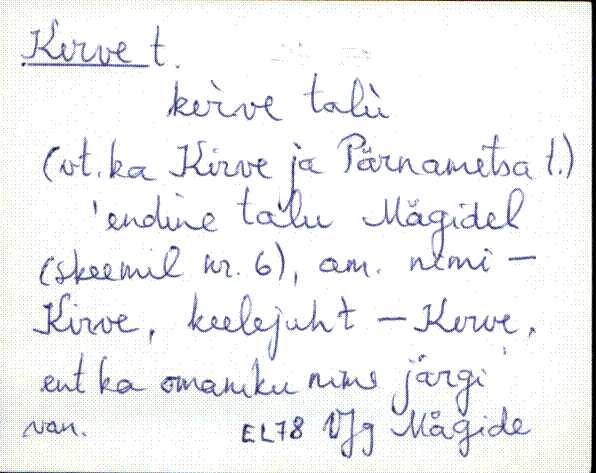 Kerve t.
kèrve talù
(vt. ka Kirve ja Pärnametsa t.)
'endine talu Mägidel
(skeemil nr. 6), am. nimi –
Kirve, keelejuht – Kerve,
ent ka omaniku nime järgi
van. EL78 Vig Mägide